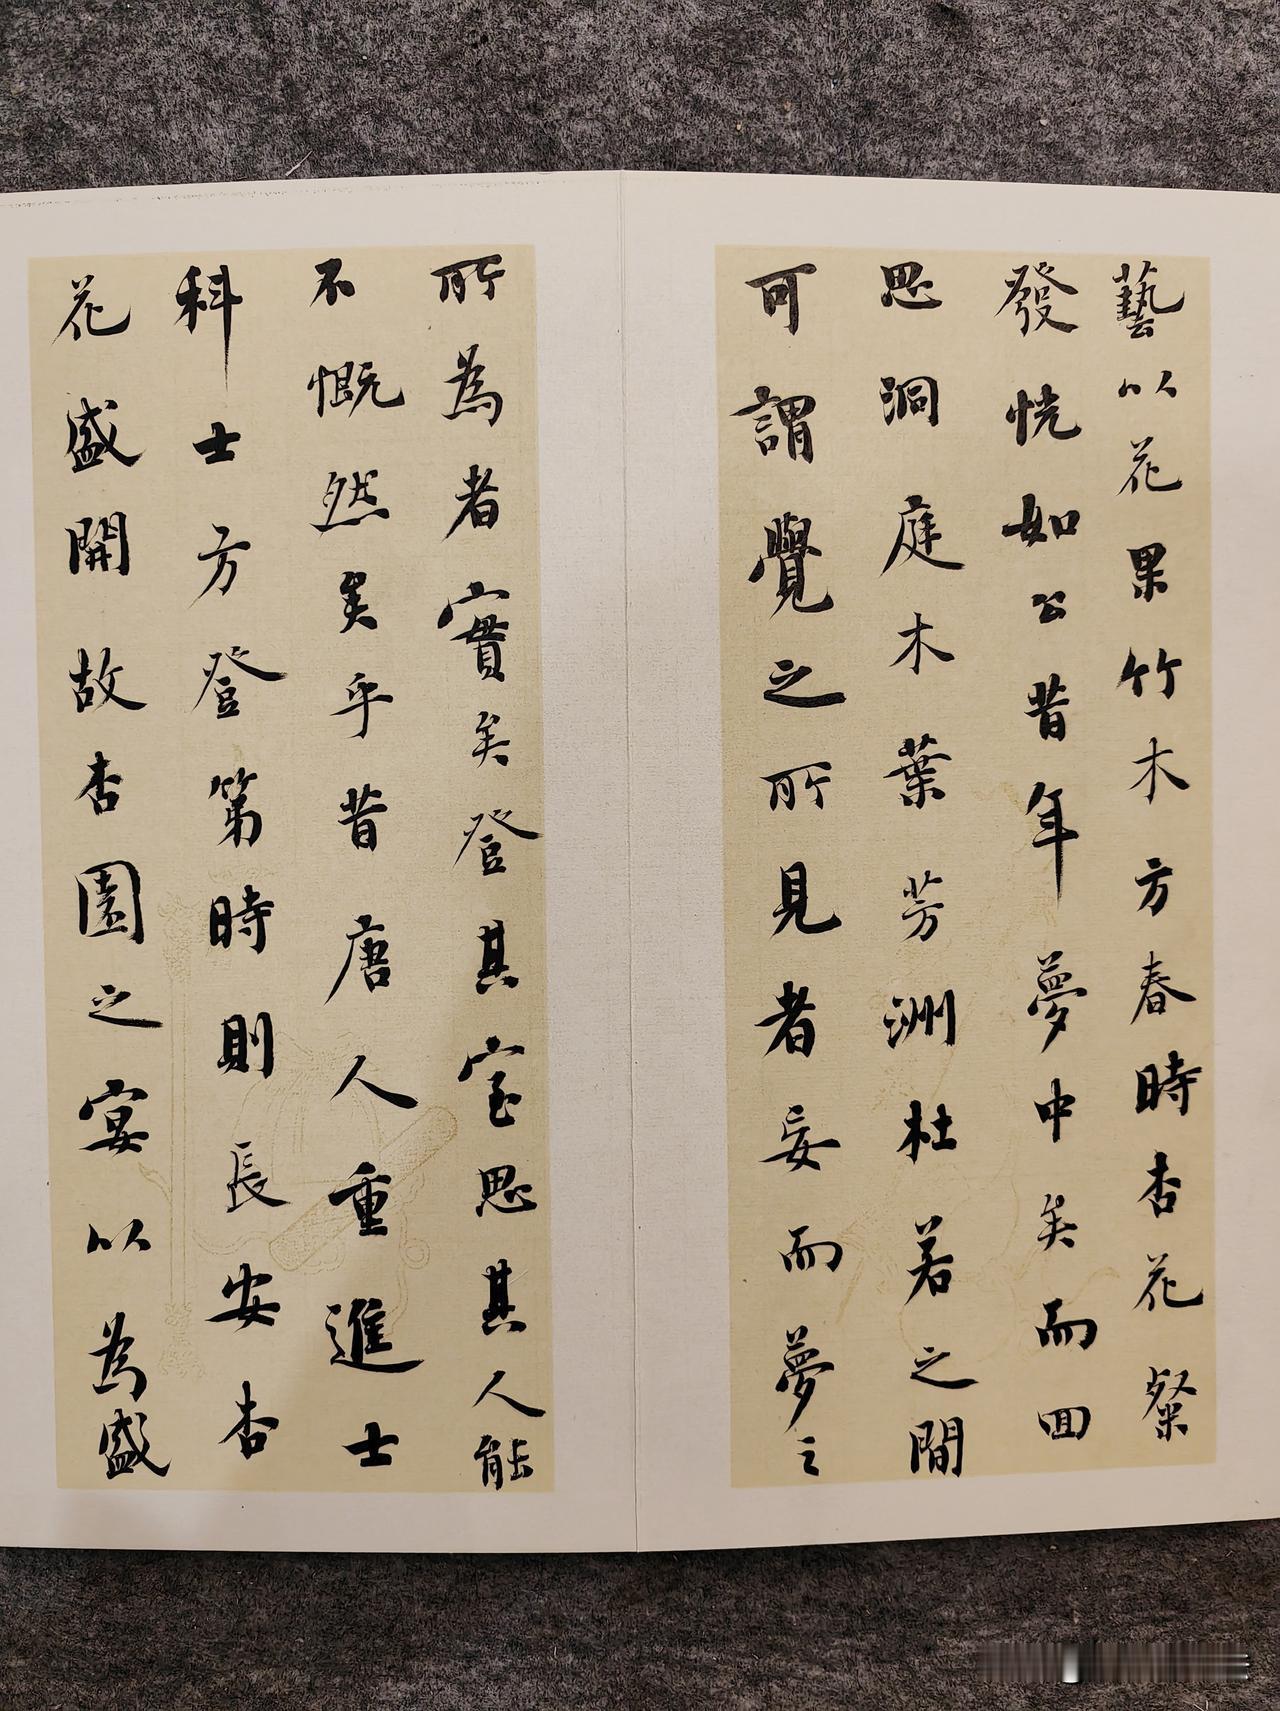 藝以花果竹木方春時杏花粲
發恍如公昔年夢中矣而回
思洞庭木葉芳洲杜若之間
可謂覺之所見者妄而夢之
所為者實矣登其室思其人能
不慨然矣乎昔唐人重進士
科士方登第時則長安杏
花盛開故杏園之宴以為盛